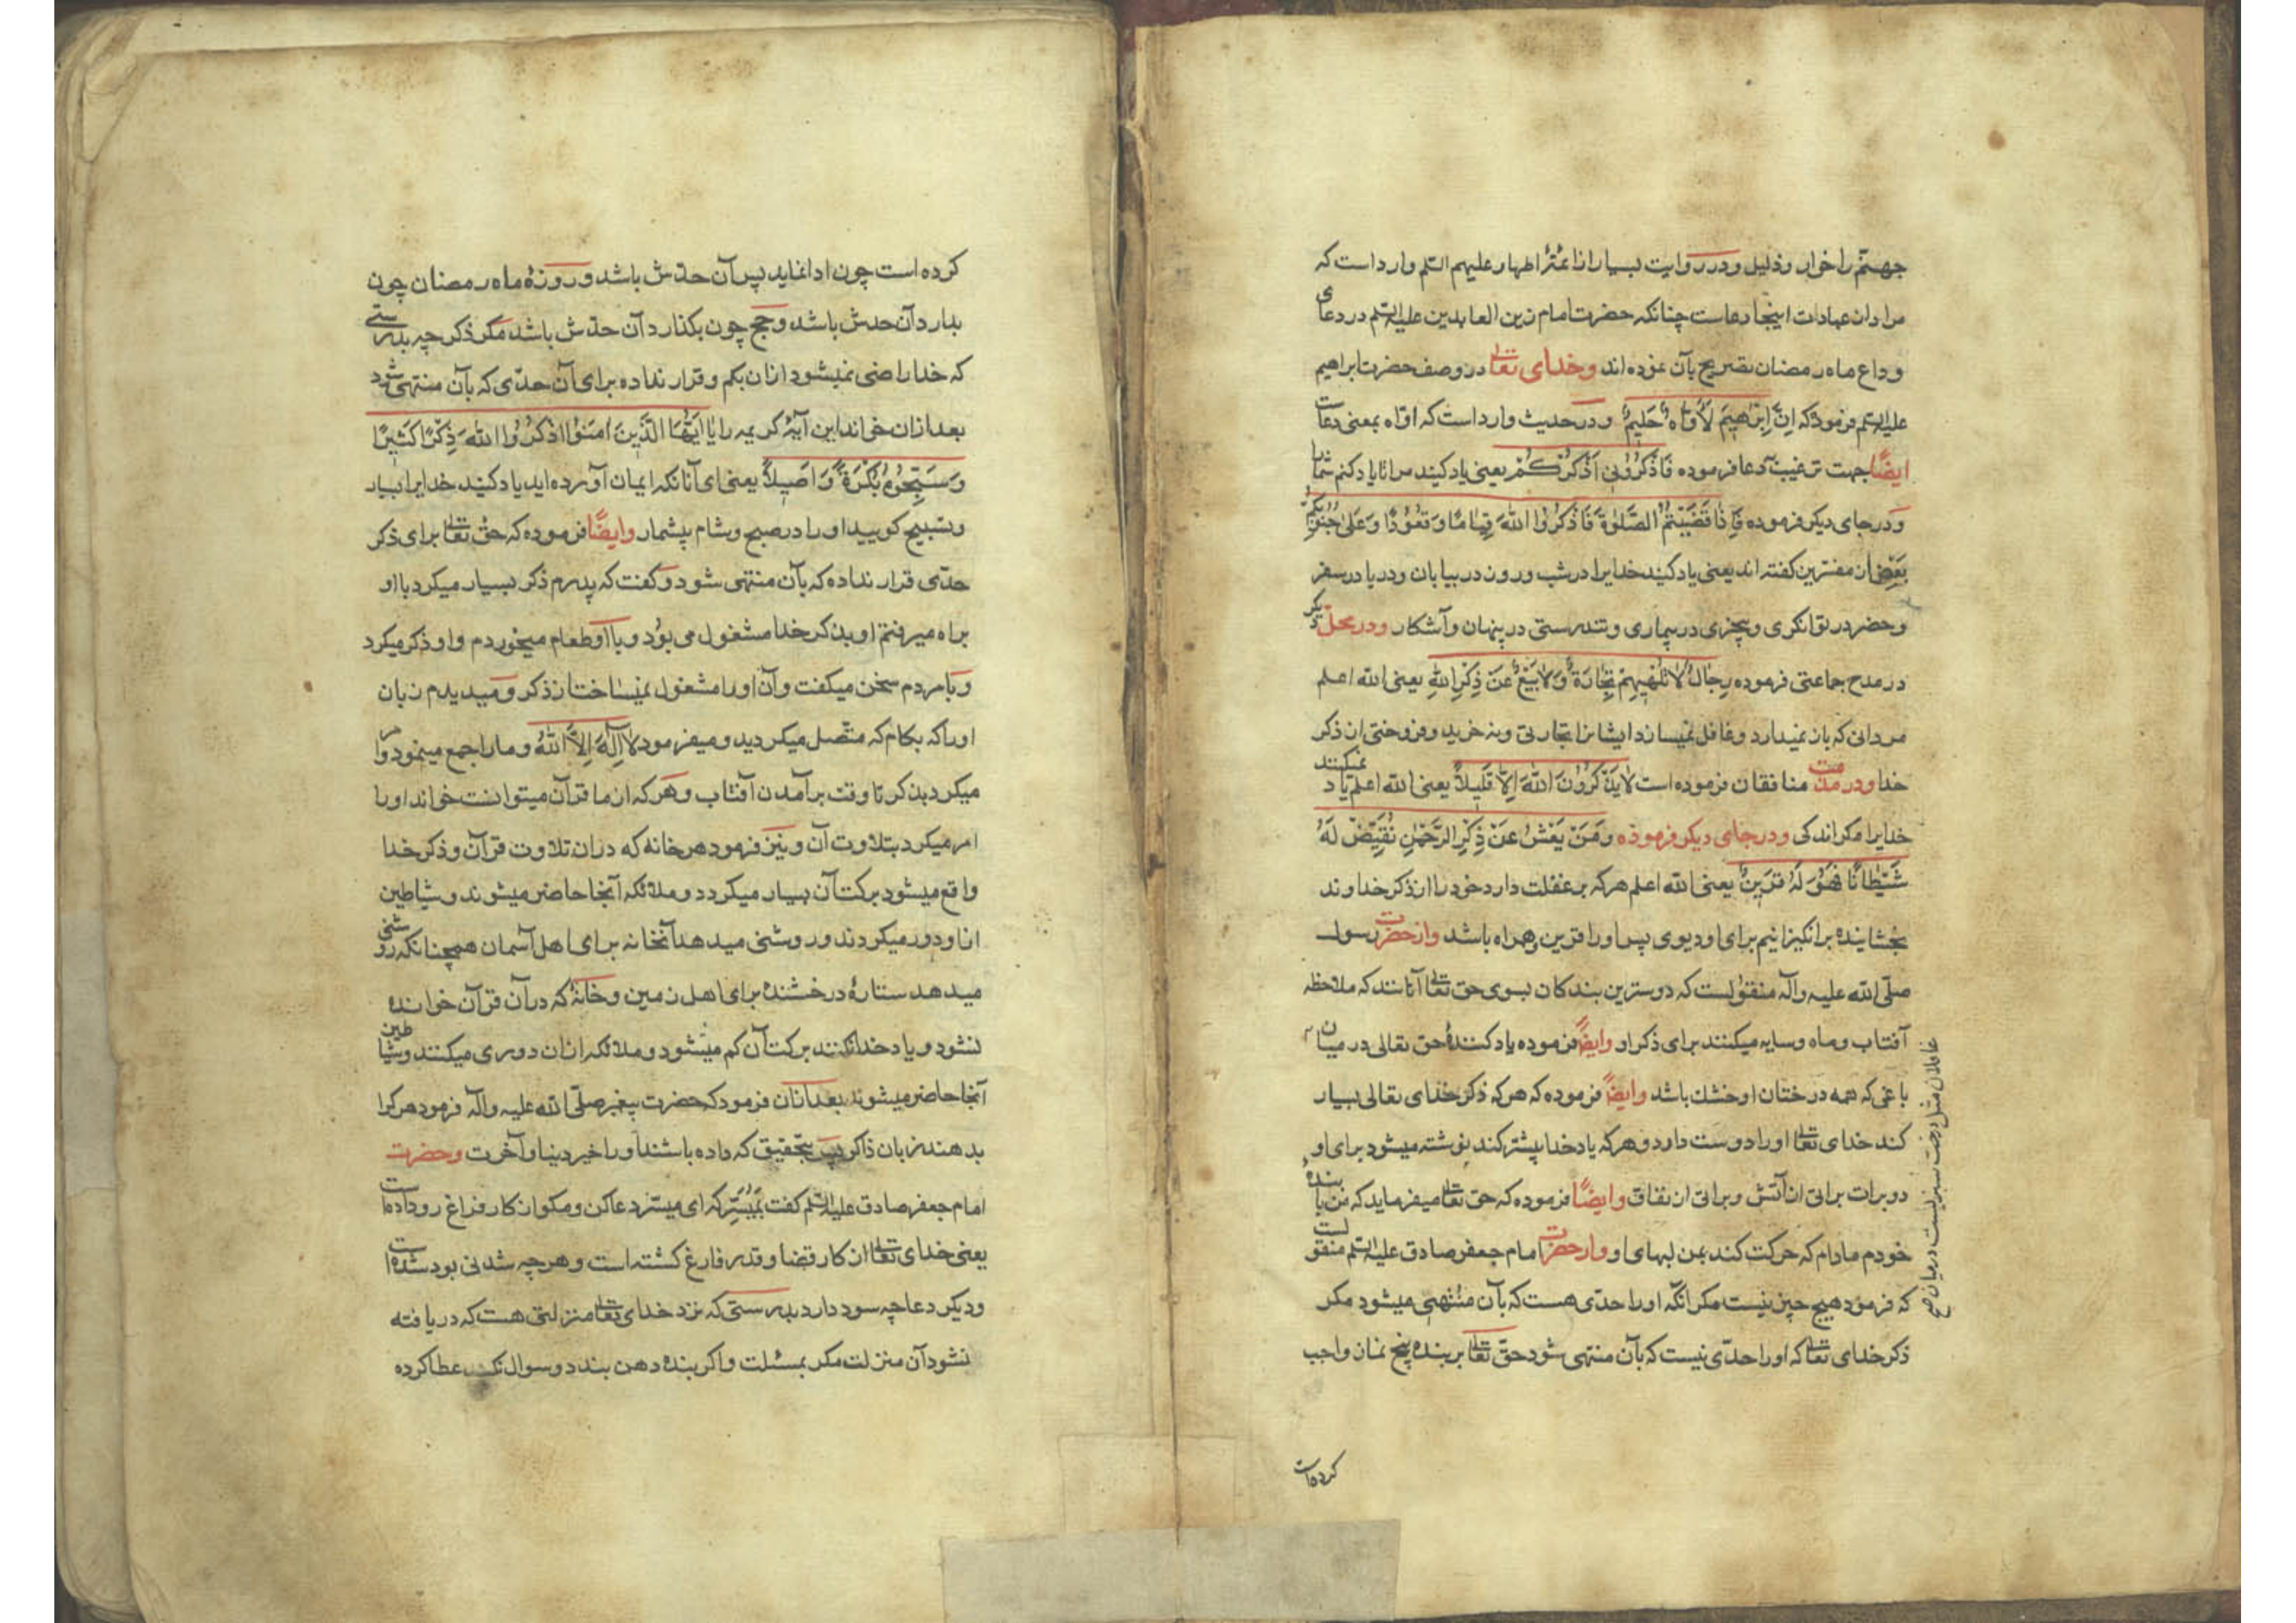 جهنّم را خوار و ذلیل و در روایت بسیار از ائمّهٔ اطهار علیهم السّلم وارد است که
مراد از عبادات اینجا دعاست چنانکه حضرت امام زین العابدین علیه السّلم در دعای
وداع ماه رمضان تصریح بآن نموده اند وخدای تعالی در وصف حضرت ابراهیم
علیه السّلم فرمود که اِنَّ اِبْرٰهیمَ لَاَوّاهٌ حَلیمٌ و در حدیث وارد است که اوّاه بمعنی دعاست
ایضًا جهت ترغیب دعا فرموده فَاذْکُرُونی اَذْکُرْکُمْ یعنی یاد کنید مرا تا یاد کنم شما را
و در جای دیکر فرموده فَاِذٰا قَضَیْتُمُ الصَّلٰوةَ فَاذْکُرُوا اللّٰهَ قِیٰامًا وَ قُعُوْدًا وَعَلیٰ جُنُوبِکُمْ
بعضی از مفسّرین کفته اند یعنی یاد کنید خدایرا در شب و روز در بیابان و دریا در سفر
و حضر در توانکری و بیچیزی در بیماری و تندرستی در پنهان و آشکار ودر محل دیکر
در مدح جماعتی فرموده رِجٰالٌ لٰا تُلْهیهِمْ تِجٰارَةٌ وَلٰابَیْعٌ عَنْ ذِکْرِ اللّٰهِ یعنی الله اعلم
مردانی که باز نمیدارد و غافل نمیسازد ایشانرا تجارتی و نه خرید و فروختی از ذکر
خدا ودر مذمت منافقان فرموده است لٰایَذْکُرُونَ اللّٰهَ اِلّٰا قَلیلًا یعنی الله اعلم یاد نمیکنند
خدایرا مکر اندکی ودر جای دیکر فرموده وَمَنْ یَعْشُ عَنْ ذِکْرِ الرَّحْمٰنِ نُقَیِّضْ لَهُ
شَیْطٰانًا فَهُوَ لَهُ قَرینٌ یعنی الله اعلم هرکه بر غفلت دارد خود را از ذکر خداوند
بخشاینده برانکیزانیم برای او دیوی پس او را قرین و همراه باشد واز حضرت رسول
صلّی الله علیه و آله منقولست که دوسترین بندکان بسوی حق تعالی آنانند که ملاحظه
آفتاب و ماه و سایه میکنند برای ذکر او وایضًا فرموده یاد کنندهٔ حق تعالی در میان
غافلان مثل درخت سبزیست در میان صح
باغی که همه درختان او خشك باشد وایضًا فرموده که هرکه ذکر خدای تعالی بسیار
کند خدای تعالی او را دوست دارد و هرکه یاد خدا بیشتر کند نوشته میشود برای او
دو برات براتی از آتش و براتی از نفاق وایضًا فرموده که حق تعالی میفرماید که من با بندهٔ
خودم مادام که حرکت کند بمن لبهای او واز حضرت امام جعفر صادق علیه السّلم منقولست
که فرمود هیچ چیز نیست مکر انکه او را حدّی هست که بآن منتهی میشود مکر
ذکر خدای تعالی که او را حدّی نیست که بآن منتهی شود حقّ تعالی بر بنده پنج نماز واجب
کرده است
کرده است چون ادا نماید پس آن حدّش باشد و روزهٔ ماه رمضان چون
بدارد آن حدش باشد و حج چون بکذارد آن حدّش باشد مکر ذکر چه بدرستی
که خدا راضی نمیشود ازان بکم و قرار نداده برای آن حدّی که بآن منتهی شود
بعد ازان خواند این آیهٔ کریمه را یٰا اَیُّهَا الَّذینَ اٰمَنُوْا اذْکُرُوا اللّٰهَ ذِکْرًا کَثیرًا
وَ سَبِّحُوهُ بُکْرَةً وَاَصیلًا یعنی ای آنانکه ایمان آورده اید یاد کنید خدایرا بسیار
و تسبیح کویید او را در صبح و شام بیشمار وایضًا فرموده که حق تعالی برای ذکر
حدّی قرار نداده که بآن منتهی شود و کفت که پدرم ذکر بسیار میکرد با او
براه میرفتم او بذکر خدا مشغول می بود و با او طعام میخوردم و او ذکر میکرد
و با مردم سخن میکفت و آن او را مشغول نمیساخت از ذکر و میدیدم زبان
او را که بکام که متّصل میکردید و میفرمود لٰا اِلٰهَ اِلَّا اللّٰهُ و ما را جمع مینمود و امر
میکرد بذکر تا وقت برآمدن آفتاب و هر که از ما قرآن میتوانست خواند او را
امر میکرد بتلاوت آن و نیز فرمود هر خانه که دران تلاوت قرآن و ذکر خدا
واقع میشود برکت آن بسیار میکردد و ملائکه آنجا حاضر میشوند و شیاطین
ازا و دور میکردند و روشنی میدهد آنخانه برای اهل آسمان همچنانکه روشنی
میدهد ستارهٔ درخشنده برای اهل زمین و خانهٔ که در آن قرآن خوانده
نشود و یاد خدا نکنند برکت آن کم میشود و ملائکه ازان دوری میکنند و شیاطین
آنجا حاضر میشوند بعد ازان فرمود که حضرت پیغمبر صلّی الله علیه و آله فرمود هر کرا
بدهند زبان ذاکر پس بتحقیق که داده باشند او را خیر دنیا و آخرت وحضرت
امام جعفر صادق علیه السّلم کفت بمُیَسِّر که ای میسّر دعا کن و مکو از کار فراغ رو داده است
یعنی خدای تعالی از کار قضا و قدر فارغ کشته است و هرچه شدنی بود شده است
و دیکر دعا چه سود دارد بدرستی که نزد خدای تعالی منزلتی هست که دریافته
نشود آن منزلت مکر بمسئلت و اکر بنده دهن بندد و سوال نکند عطا کرده